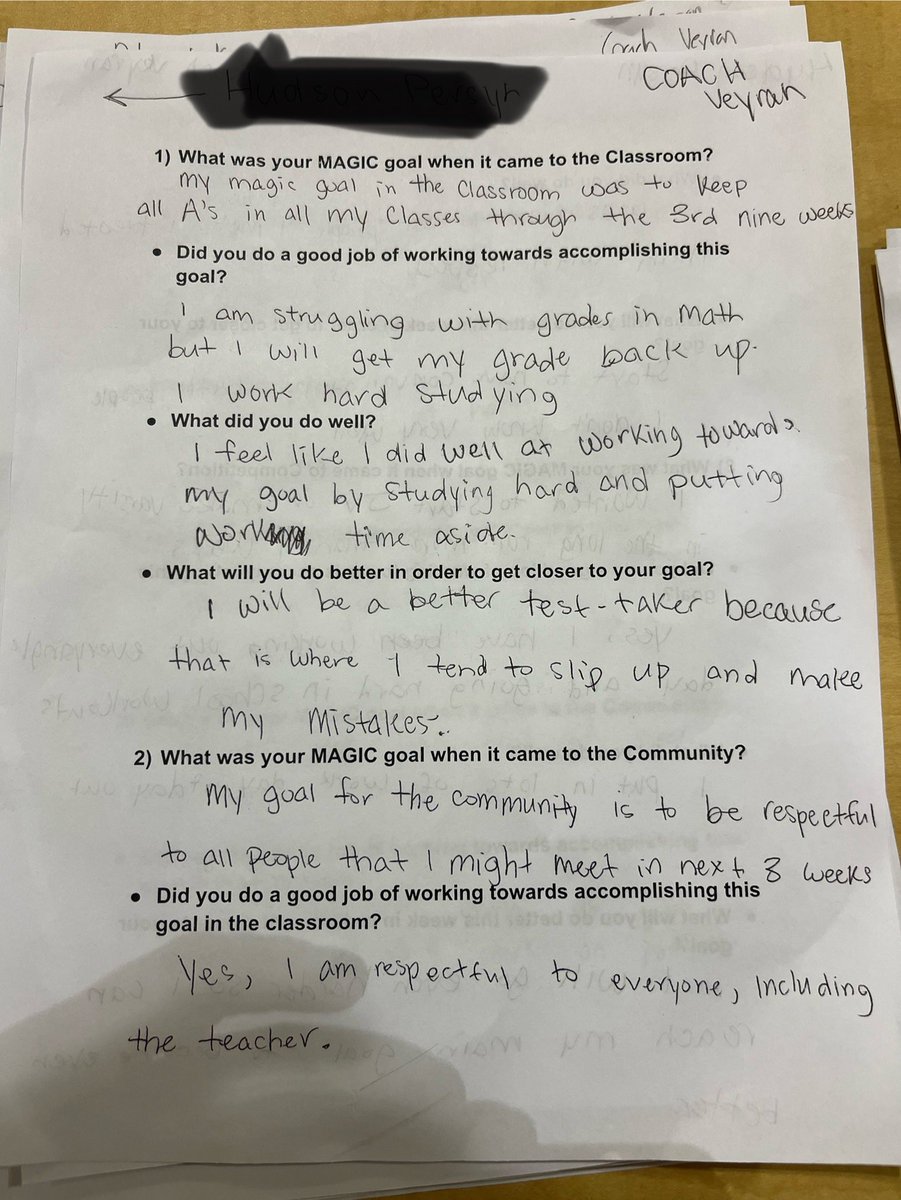 Coach Veyran
COACH
Veyran
1) What was your MAGIC goal when it came to the Classroom?
My magic goal in the classroom was to keep
all A's in all my classes through the 3rd nine weeks
• Did you do a good job of working towards accomplishing this
goal?
I am struggling with grades in math
but I will get my grade back up.
I work hard studying
• What did you do well?
I feel like I did well at working towards
my goal by studying hard and putting
work time aside.
• What will you do better in order to get closer to your goal?
I will be a better test-taker because
that is where I tend to slip up and make
my mistakes.
2) What was your MAGIC goal when it came to the Community?
My goal for the community is to be respectful
to all people that I might meet in next 8 weeks
• Did you do a good job of working towards accomplishing this
goal in the classroom?
Yes, I am respectful to everyone, including
the teacher.